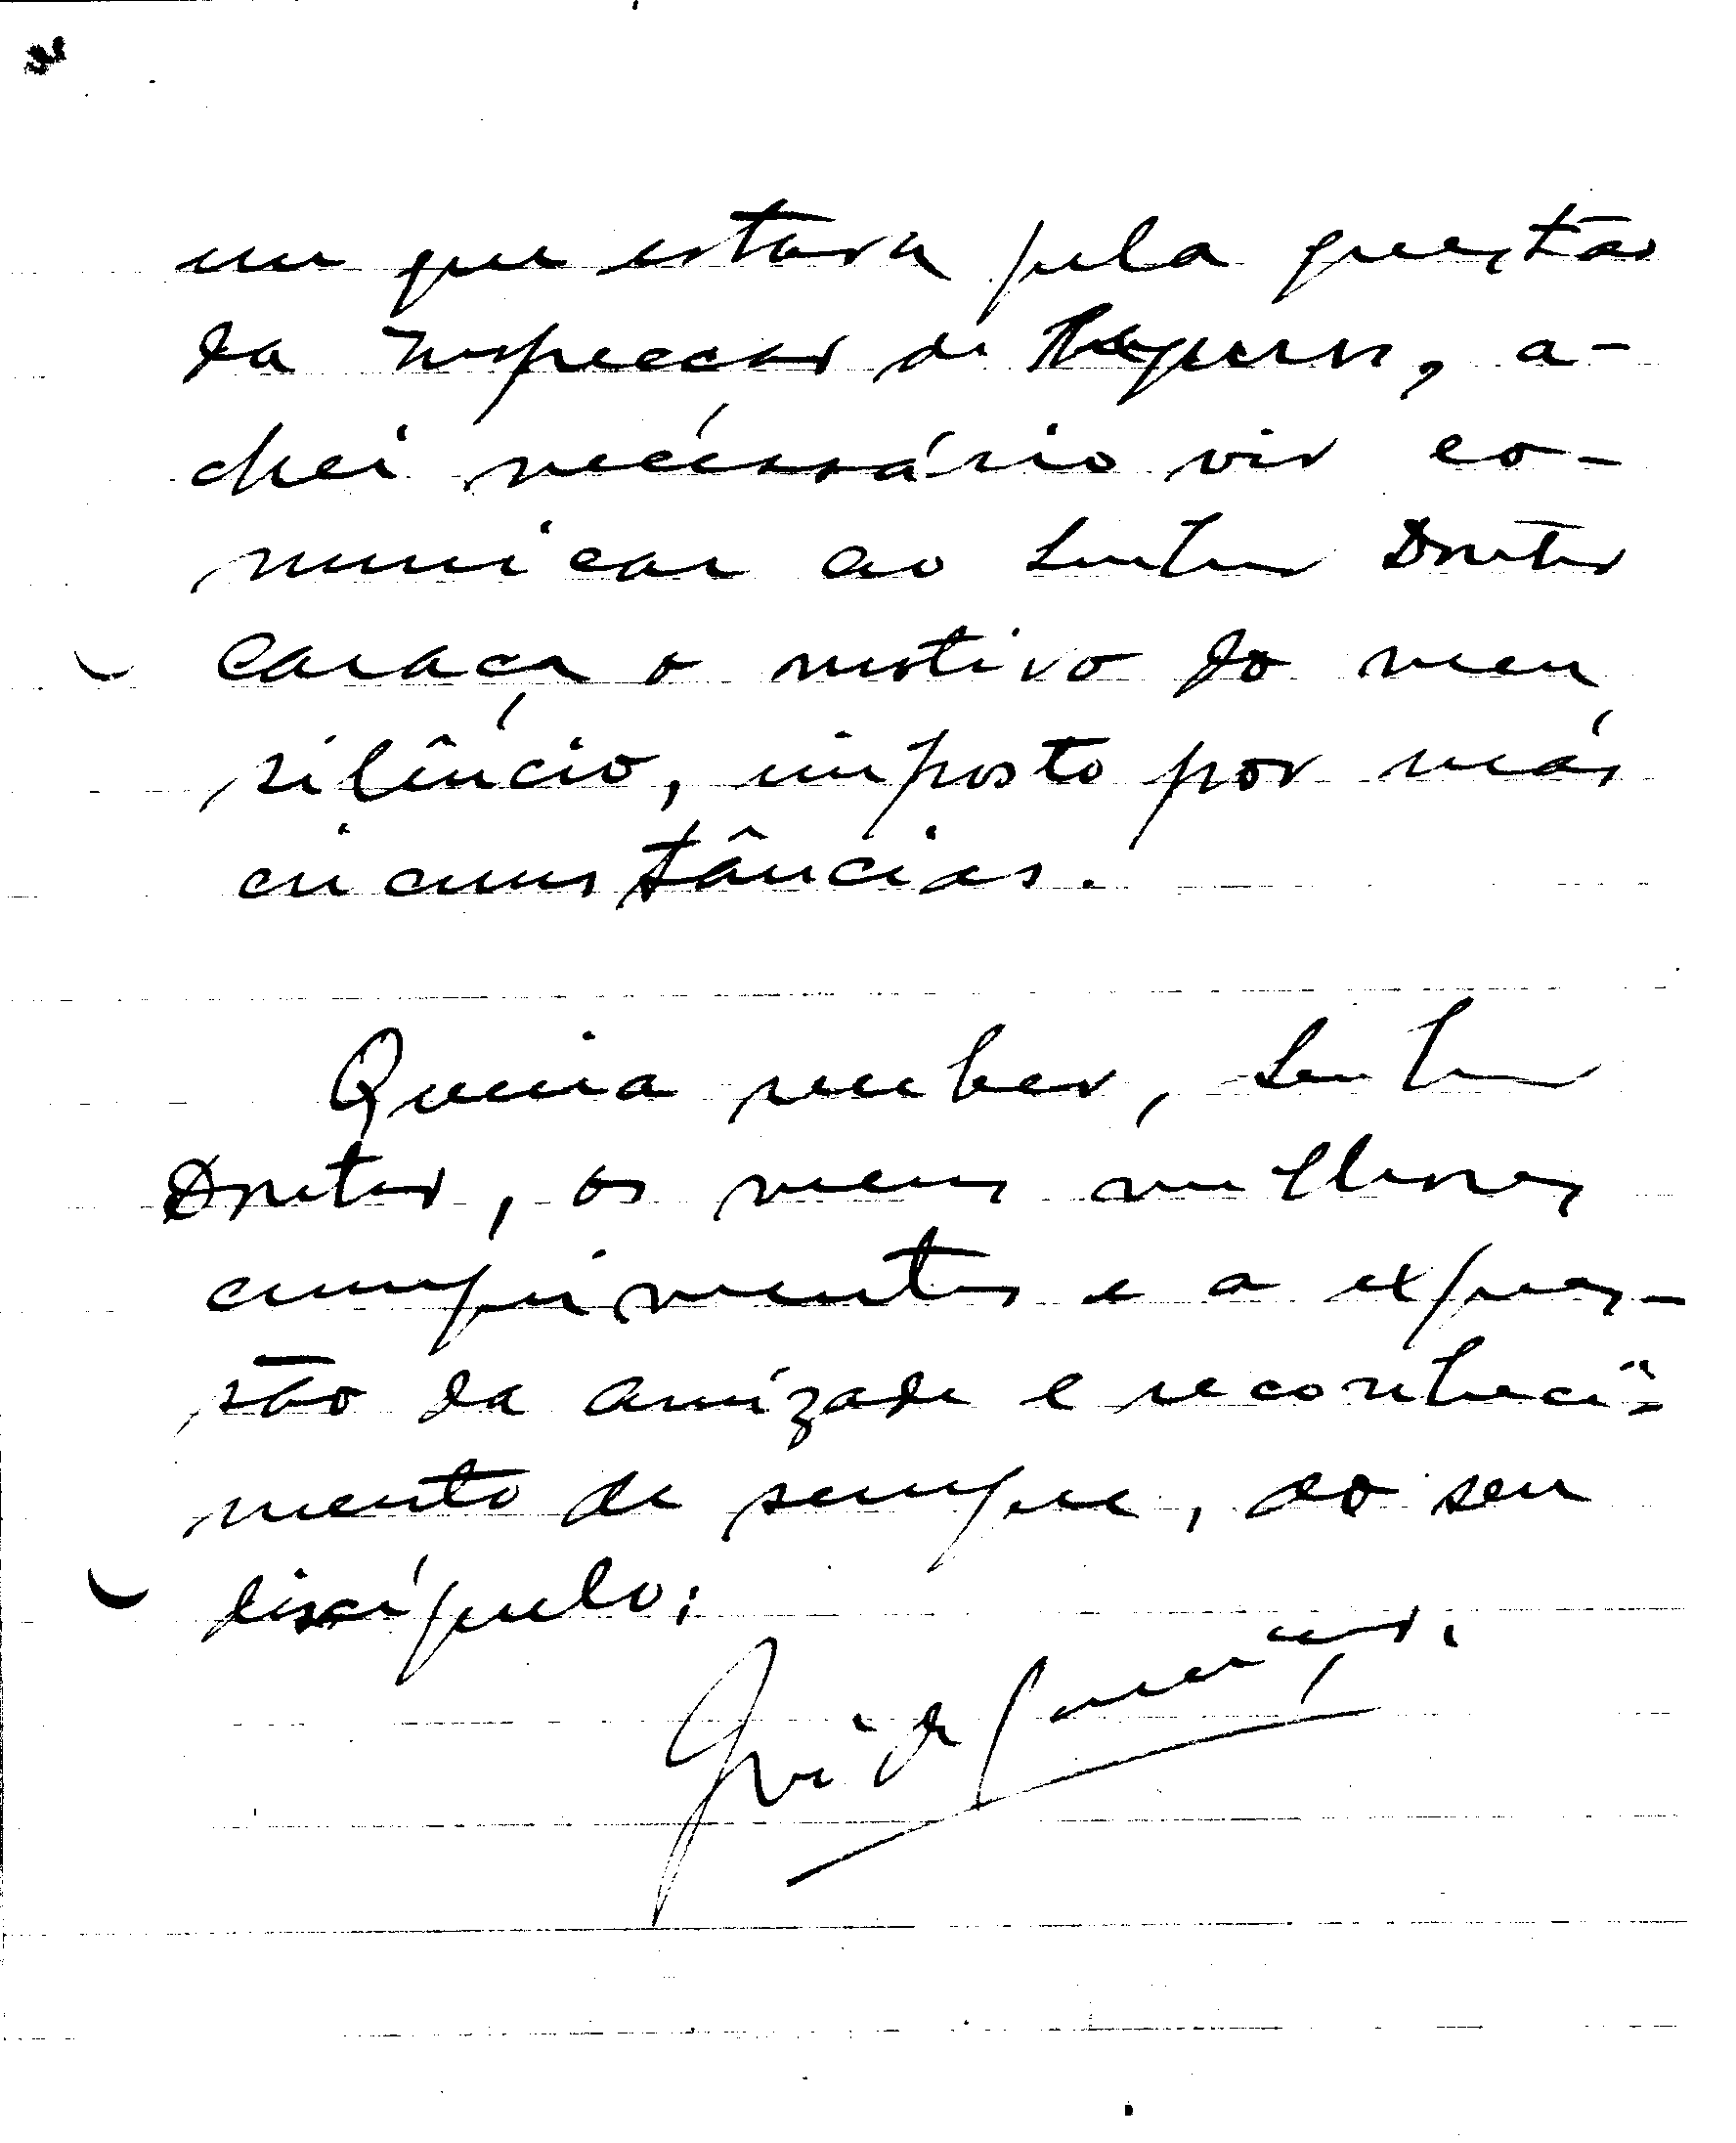 em que estava pela questão
da Inspecção de Seguros, a-
chei necessário vir co-
municar ao Senhor Doutor
Caraça o motivo do meu
silêncio, imposto por más
circunstâncias.
Queira receber, Senhor
Doutor, os meus melhores
cumprimentos e a expres-
são da amizade e reconheci-
mento de sempre, do seu
discípulo: